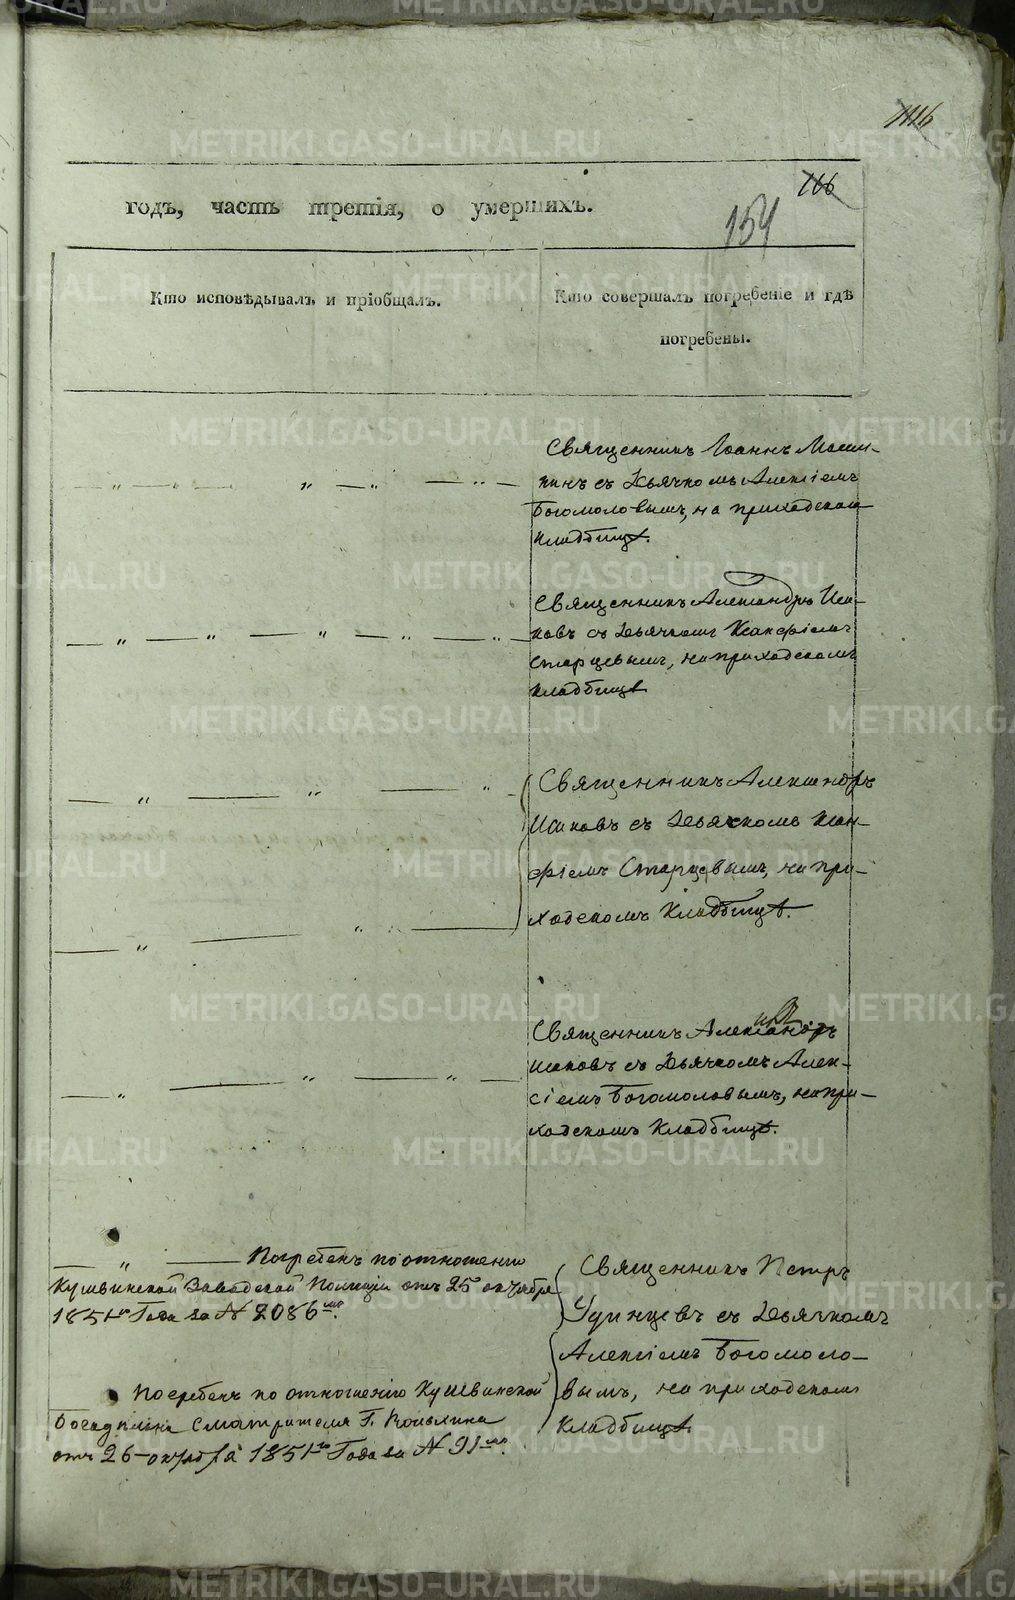 1116
166
154
годъ, часть третія, о умершихъ.
Кто исповѣдывалъ и пріобщалъ.
Кто совершалъ погребеніе и гдѣ
погребены.
Священникъ Іоаннъ Маши-
кинъ съ Дьячкомъ Алексіемъ
Богомоловымъ, на приходскомъ
Кладбищѣ.
Священникъ Александръ Иса-
ковъ съ Дьячкомъ Ксанфіемъ
Старцевымъ, на приходскомъ
Кладбищѣ
Священникъ Александръ
Исаковъ съ Дьячкомъ Ксан-
фіемъ Старцевымъ, на при-
ходскомъ Кладбищѣ.
Священникъ Александръ
Исаковъ съ Дьячкомъ Алек-
сіемъ Богомоловымъ, на при-
ходскомъ Кладбищѣ.
Погребенъ по отношенію
Кушвинской Заводской Полиціи отъ 25 октября
1851го Года за № 2086мъ.
Священникъ Петръ
Удинцевъ съ Дьячкомъ
Алексіемъ Богомоло-
вымъ, на приходскомъ
Кладбищѣ
Погребенъ по отношенію Кушвинской
Смотрителя Г.
отъ 26 октября 1851го Года за № 91мъ.
METRIKI.GASO-URAL.RU